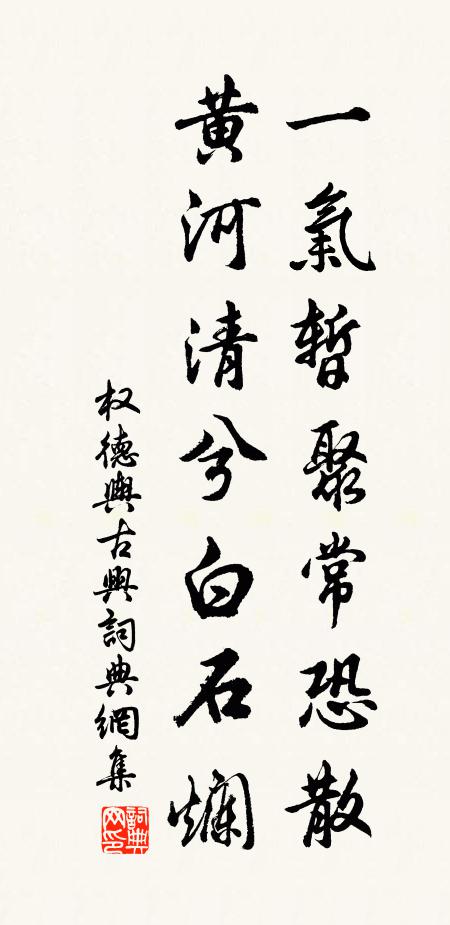 一氣暫聚常恐散
黃河清兮白石爛
权德輿古興詞典網集
詞典網印